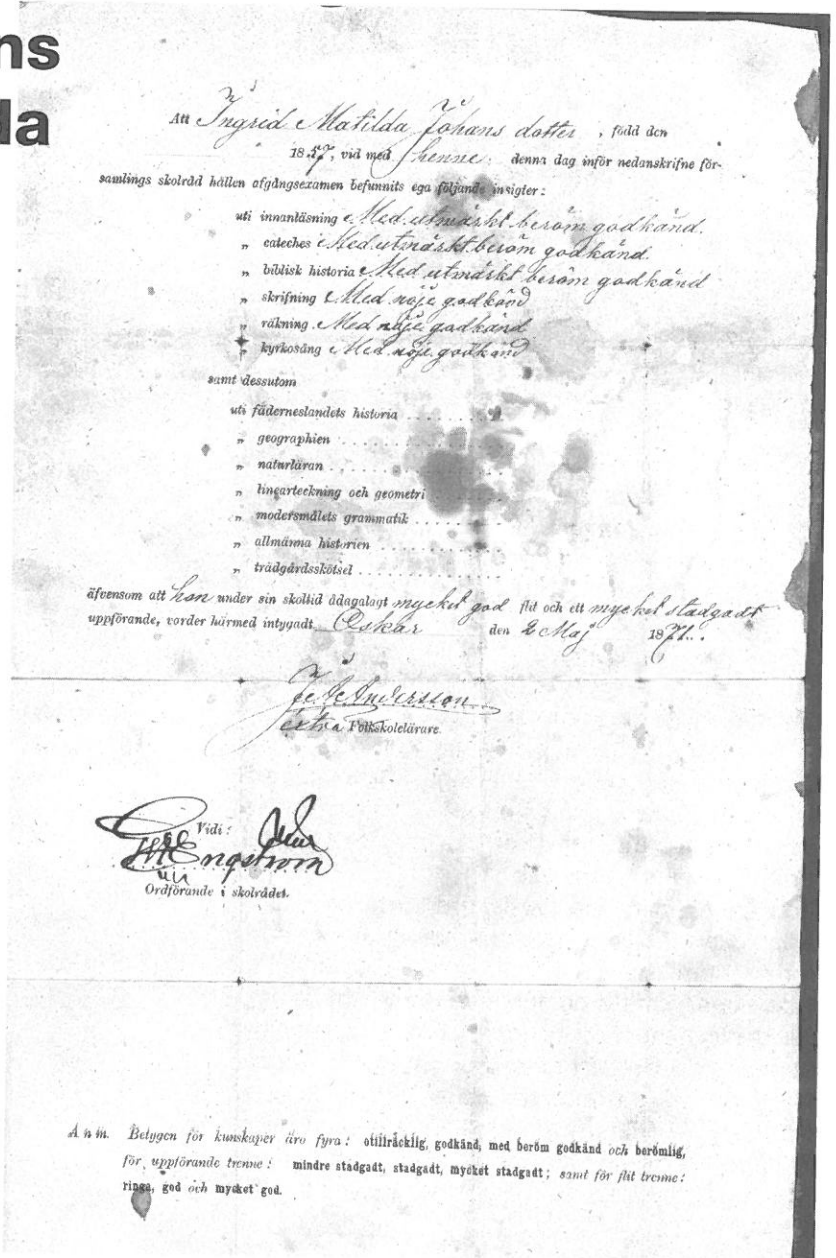 ns
la
Att Ingrid Matilda Johans dotter, född den
1857, vid med henne denna dag inför nedanskrifne för-
samlings skolråd hållen afgångsexamen befunnits ega följande insigter:
uti innanläsning Med utmärkt beröm godkänd.
„ cateches Med utmärkt beröm godkänd.
„ biblisk historia Med utmärkt beröm godkänd
„ skrifning Med nöje godkänd
„ räkning Med nöje godkänd
„ kyrkosång Med nöje godkänd
samt dessutom
uti fäderneslandets historia . . . . . . . . . .
„ geographien . . . . . . . . . .
„ naturläran . . . . . . . . . .
„ linearteckning och geometri . . . . . . . . . .
„ modersmålets grammatik . . . . . . . . . .
„ allmänna historien . . . . . . . . . .
„ trädgårdsskötsel . . . . . . . . . .
äfvensom att hon under sin skoltid ådagalagt mycket god flit och ett mycket stadgadt
uppförande, varder härmed intygadt Oskar den 2 Maj 1871.
Andersson
extra Folkskolelärare.
Vidi:
Engström
Ordförande i skolrådet.
Anm. Betygen för kunskaper äro fyra: otillräcklig, godkänd, med beröm godkänd och berömlig,
för uppförande trenne: mindre stadgadt, stadgadt, mycket stadgadt; samt för flit trenne:
ringa, god och mycket god.